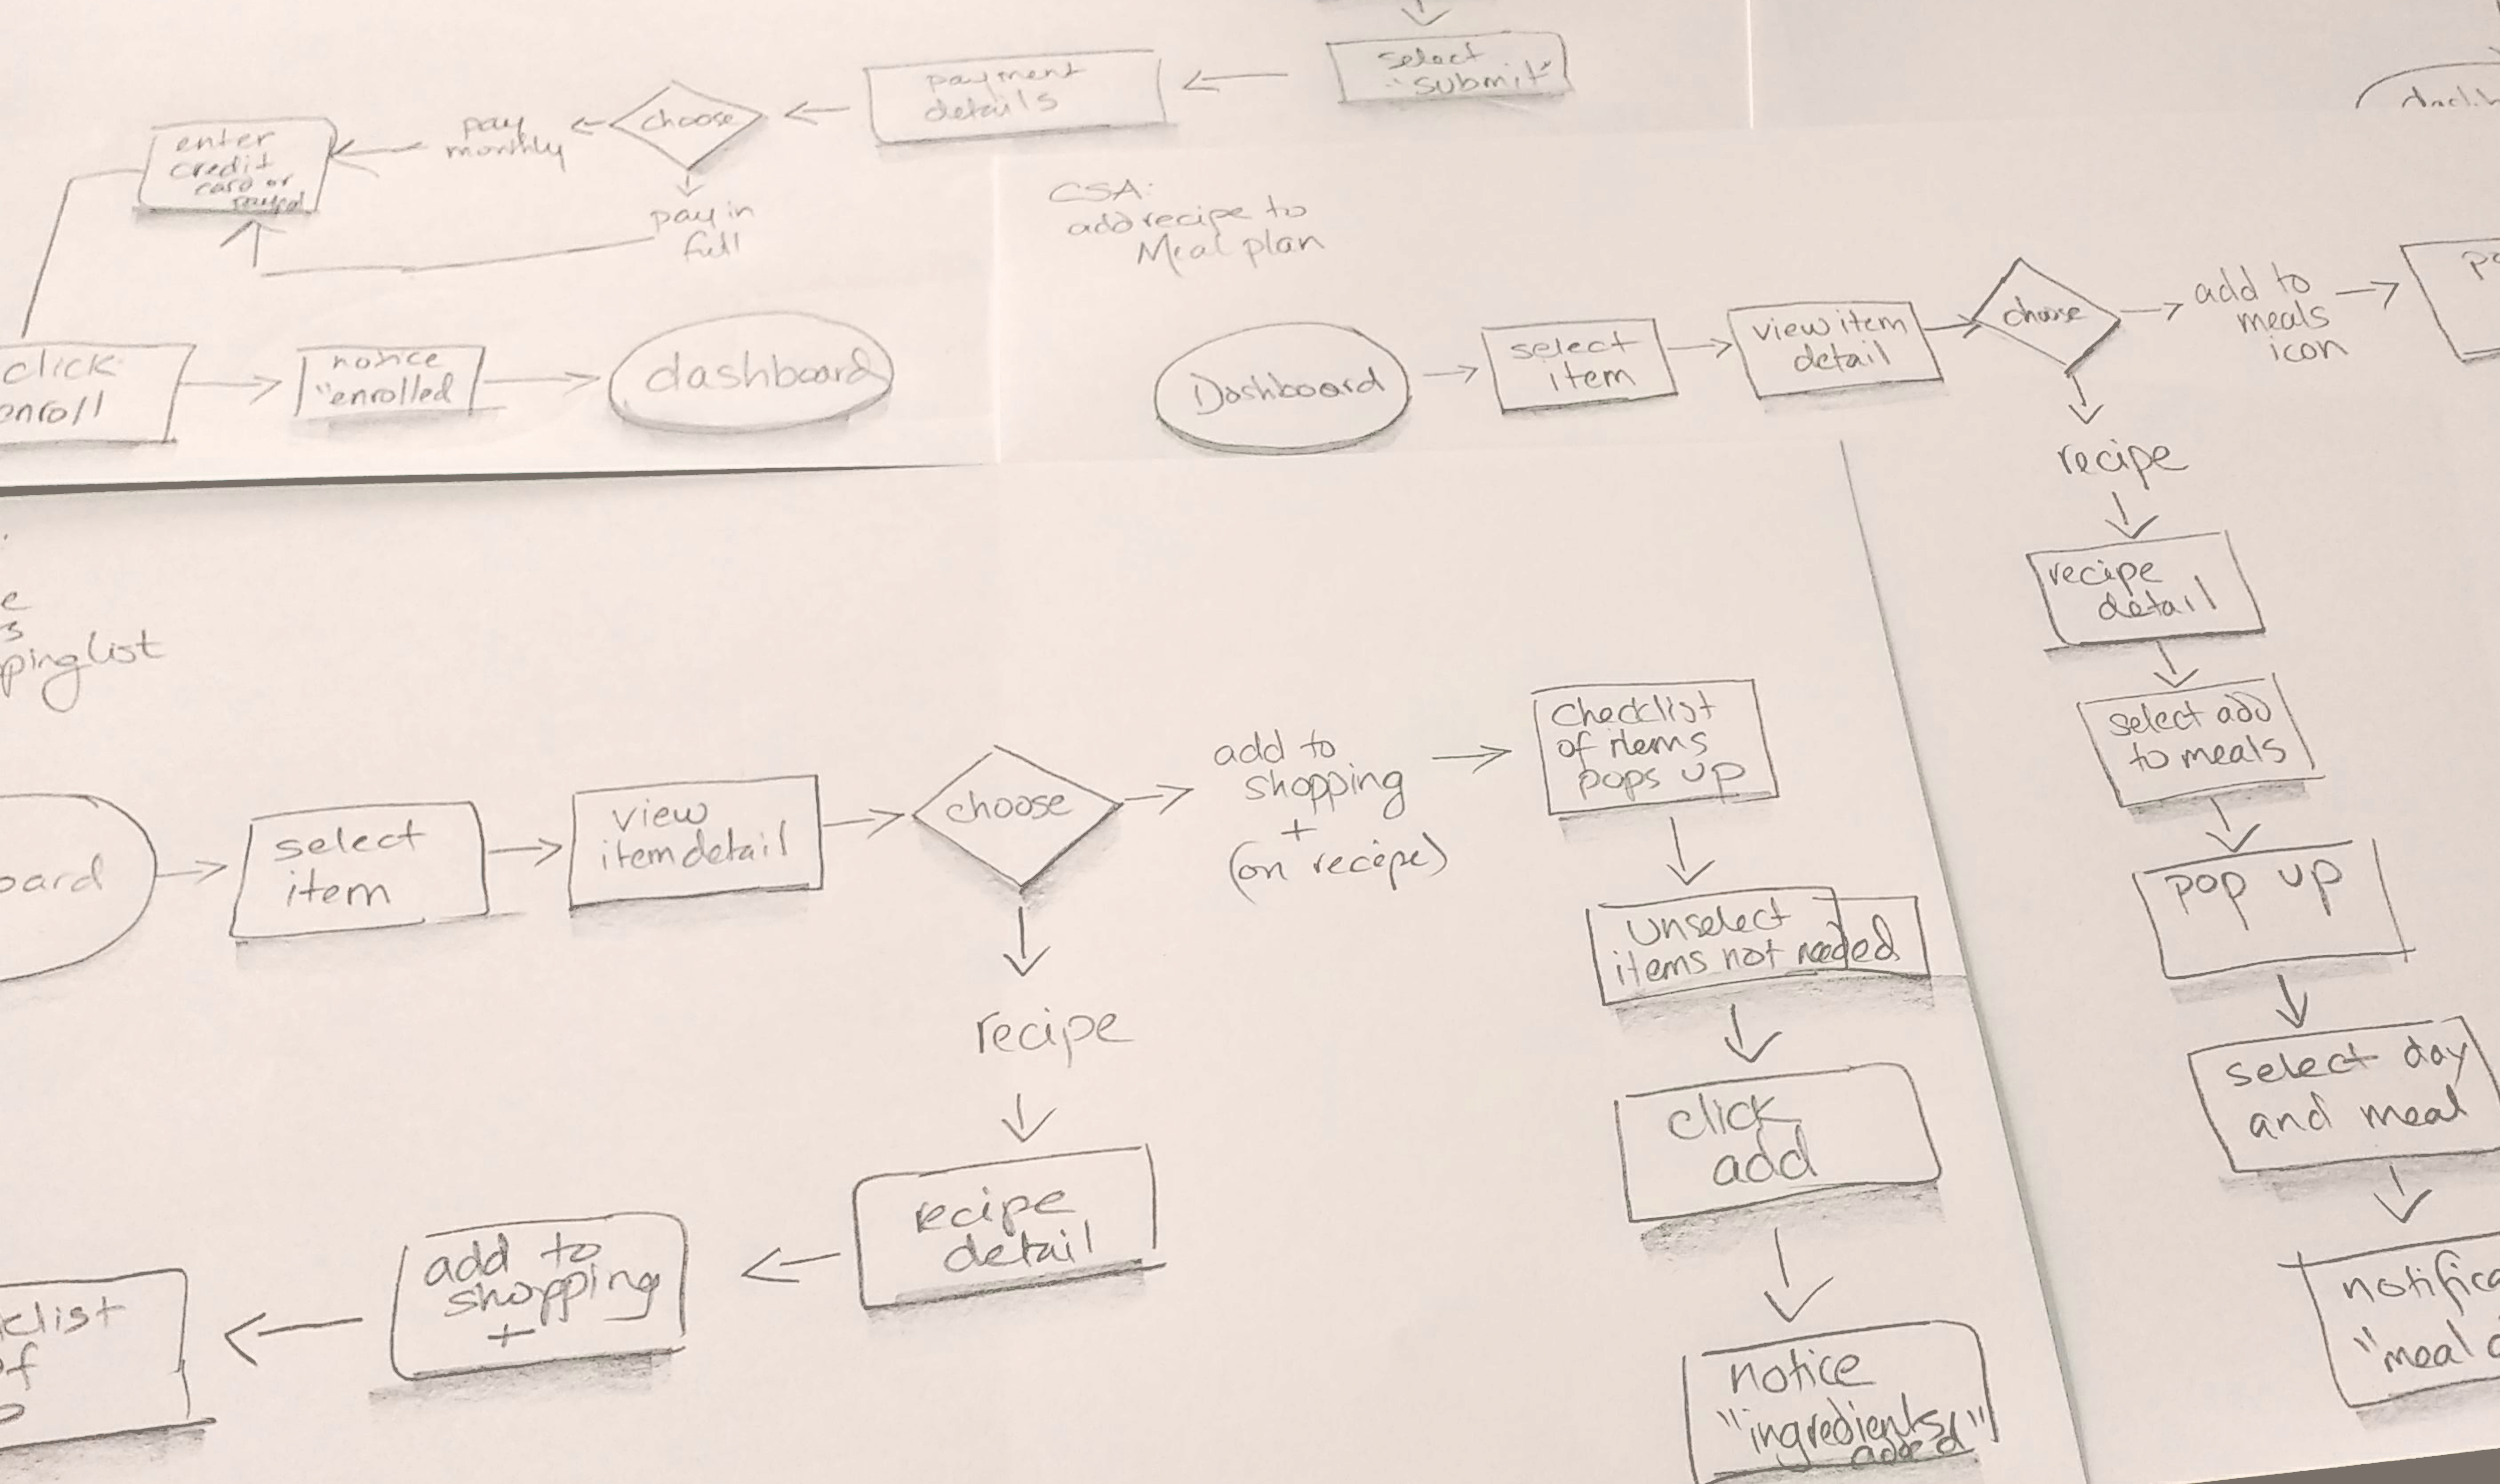 select
"submit"
payment
details
choose
pay
monthly
pay in
full
enter
credit
card or
paypal
click
enroll
notice
"enrolled
dashboard
CSA:
add recipe to
Meal plan
Dashboard
select
item
view item
detail
choose
add to
meals
icon
recipe
recipe
detail
select add
to meals
pop up
select day
and meal
notifica
"meal
e
s
ping list
oard
select
item
view
item detail
choose
add to
shopping
+
(on recipe)
checklist
of items
pops up
unselect
items not needed
click
add
notice
"ingredients"
added
recipe
recipe
detail
add to
shopping
+
cklist
of